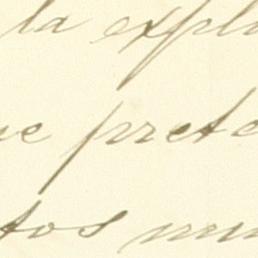 la explo
ue prete
tos mu